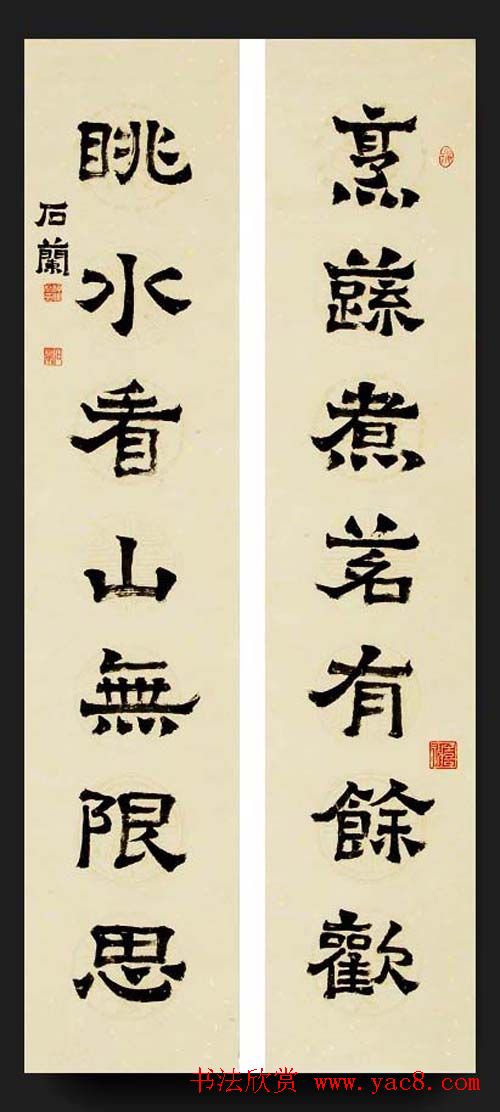 烹蔬煮茗有餘歡
眺水看山無限思
石蘭
书法欣赏 www.yac8.com